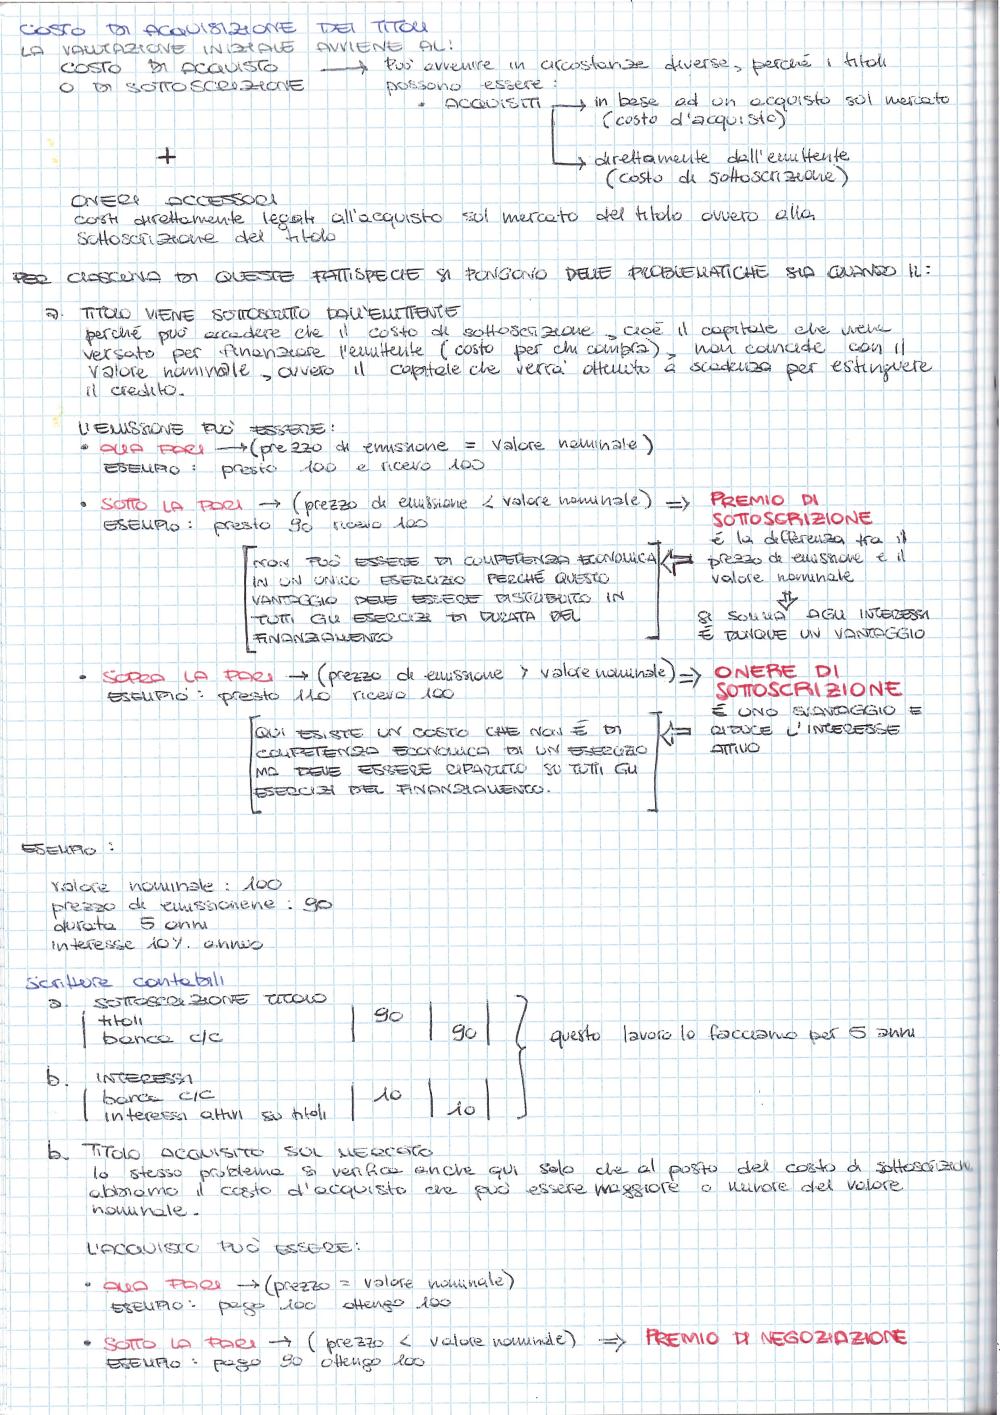 COSTO DI ACQUISIZIONE DEI TITOLI
LA VALUTAZIONE INIZIALE AVVIENE AL:
COSTO DI ACQUISTO → Può avvenire in circostanze diverse, perché i titoli
O DI SOTTOSCRIZIONE possono essere:
• ACQUISITI → in base ad un acquisto sul mercato
(costo d'acquisto)
+
→ direttamente dall'emittente
(costo di sottoscrizione)
ONERI ACCESSORI
costi direttamente legati all'acquisto sul mercato del titolo ovvero alla
sottoscrizione del titolo
PER CIASCUNA DI QUESTE FATTISPECIE SI PONGONO DELLE PROBLEMATICHE SIA QUANDO IL:
a. TITOLO VIENE SOTTOSCRITTO DALL'EMITTENTE
perché può accadere che il costo di sottoscrizione, cioè il capitale che viene
versato per finanziare l'emittente (costo per chi compra), non coincide con il
valore nominale, ovvero il capitale che verrà ottenuto a scadenza per estinguere
il credito.
L'EMISSIONE PUÒ ESSERE:
• ALLA PARI → (prezzo di emissione = valore nominale)
ESEMPIO: presto 100 e ricevo 100
• SOTTO LA PARI → (prezzo di emissione < valore nominale) ⇒ PREMIO DI
ESEMPIO: presto 90 ricevo 100 SOTTOSCRIZIONE
é la differenza tra il
NON PUÒ ESSERE DI COMPETENZA ECONOMICA ⇐ prezzo di emissione e il
IN UN UNICO ESERCIZIO PERCHÉ QUESTO valore nominale
VANTAGGIO DEVE ESSERE DISTRIBUITO IN ⇓
TUTTI GLI ESERCIZI DI DURATA DEL SI SOMMA AGLI INTERESSI
FINANZIAMENTO É DUNQUE UN VANTAGGIO
• SOPRA LA PARI → (prezzo di emissione > valore nominale) ⇒ ONERE DI
ESEMPIO: presto 110 ricevo 100 SOTTOSCRIZIONE
É UNO SVANTAGGIO E
QUI ESISTE UN COSTO CHE NON É DI ⇐ RIDUCE L'INTERESSE
COMPETENZA ECONOMICA DI UN ESERCIZIO ATTIVO
MA DEVE ESSERE RIPARTITO SU TUTTI GLI
ESERCIZI DEL FINANZIAMENTO.
ESEMPIO:
valore nominale: 100
prezzo di emissionene: 90
durata 5 anni
interesse 10% annuo
scritture contabili
a. SOTTOSCRIZIONE TITOLO
titoli 90
banca c/c 90 questo lavoro lo facciamo per 5 anni
b. INTERESSI
banca c/c 10
interessi attivi su titoli 10
b. TITOLO ACQUISITO SUL MERCATO
lo stesso problema si verifica anche qui solo che al posto del costo di sottoscrizione
abbiamo il costo d'acquisto che può essere maggiore o minore del valore
nominale.
L'ACQUISTO PUÒ ESSERE:
• ALLA PARI → (prezzo = valore nominale)
ESEMPIO: pago 100 ottengo 100
• SOTTO LA PARI → (prezzo < valore nominale) ⇒ PREMIO DI NEGOZIAZIONE
ESEMPIO: pago 90 ottengo 100